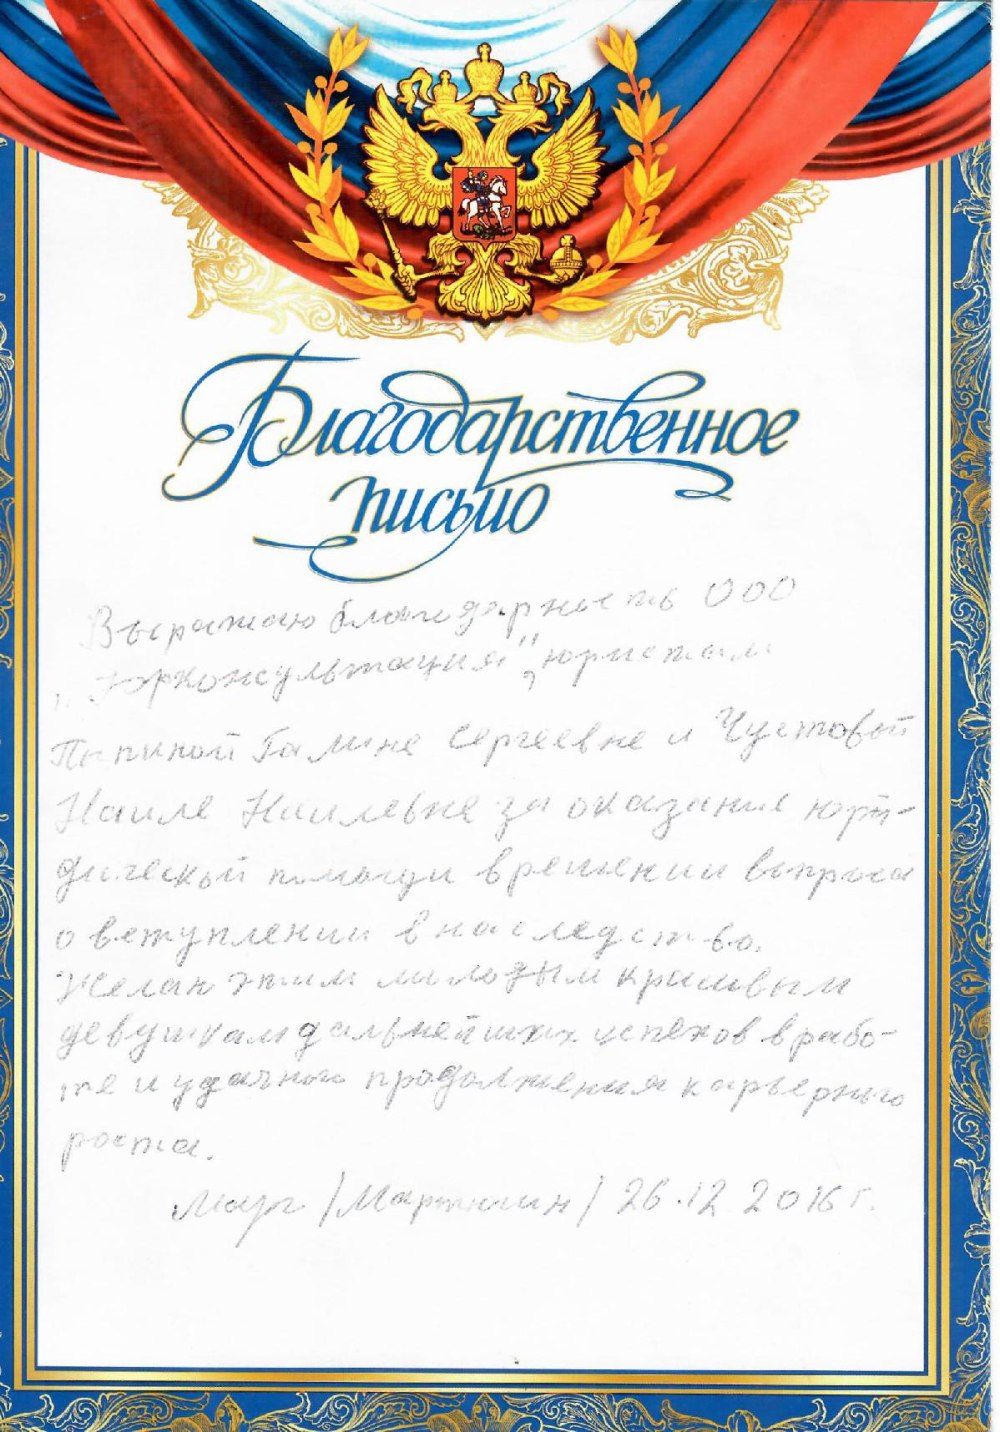 Благодарственное
письмо
Выражаю благодарность ООО
"Юрконсультация", юристам
Галине Сергеевне и Чустовой
Наиле Наилевне за оказание юри-
дической помощи в решении вопроса
о вступлении в наследство.
Желаю этим молодым красивым
девушкам дальнейших успехов в рабо-
те и удачного продолжения карьерного
роста.
/Мартюшин/ 26.12 2016 г.